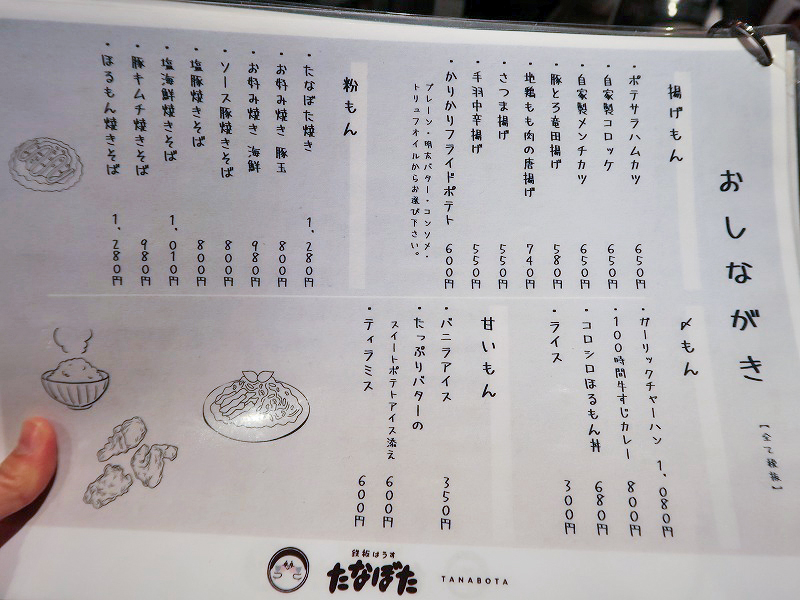 おしながき
【全て税抜】
揚げもん
・ポテサラハムカツ 650円
・自家製コロッケ 650円
・自家製メンチカツ 650円
・豚とろ竜田揚げ 580円
・地鶏もも肉の唐揚げ 740円
・さつま揚げ 550円
・手羽中辛揚げ 550円
・かりかりフライドポテト 600円
プレーン・明太バター・コンソメ・
トリュフオイルからお選び下さい。
粉もん
・たなぼた焼き 1,280円
・お好み焼き 豚玉 800円
・お好み焼き 海鮮 980円
・ソース豚焼きそば 800円
・塩豚焼きそば 800円
・塩海鮮焼きそば 1,010円
・豚キムチ焼きそば 980円
・ほるもん焼きそば 1,280円
〆もん
・ガーリックチャーハン 1,080円
・100時間牛すじカレー 800円
・コロシロほるもん丼 680円
・ライス 300円
甘いもん
・バニラアイス 350円
・たっぷりバターの
スイートポテトアイス添え 600円
・ティラミス 600円
鉄板はうす
たなぼた
TANABOTA